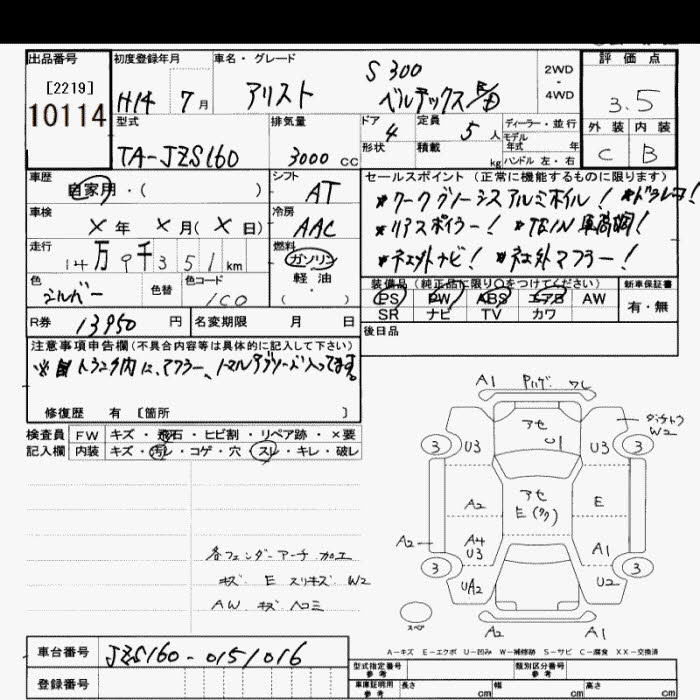 出品番号 初度登録年月 車名・グレード 評価点
[2219] S300 2WD・4WD
10114 H14 7月 アリスト ベルテックス 3.5
型式 排気量 ドア 定員 ディーラー・並行 外装 内装
TA-JZS160 3000cc 4 5人 モデル年式 年 C B
形状 積載 kg ハンドル 左・右
車歴 シフト セールスポイント (正常に機能するものに限ります)
自家用・( ) AT
車検 冷房
×年 ×月(×日) AAC ※リアスポイラー! ※TEIN車高調!
走行 燃料
14万9千351km ガソリン ※社外ナビ! ※社外マフラー!
色 色替 色コード 軽油 装備品 (純正品に限り○をつけてください) 新車保証書
シルバー 1C0 ・( ) PS PW ABS エアB AW 有・無
SR ナビ TV カワ
R券 13950円 名変期限 月 日 後日品
注意事項申告欄(不具合内容等は具体的に記入して下さい)
修復歴 有 [箇所 ]
検査員 FW キズ・飛石・ヒビ割・リペア跡・×要
記入欄 内装 キズ・汚レ・コゲ・穴・スレ・キレ・破レ
各フェンダーアーチ加工
キズ E スリキズ W2
AW キズ ヘコミ
A1
アセ
W2
3 U3 U1 U3 3
A2 アセ E
E
A2 A4 U3 A1
3 UA2 U2 3
スペア A2 A1
A-キズ E-エクボ U-凹み W-補修跡 S-サビ C-腐食 XX-交換済
車台番号 JZS160-0151016
登録番号
型式指定番号 参考 類別区分番号 参考
車庫証明用 参考 長さ cm 幅 cm 高さ cm